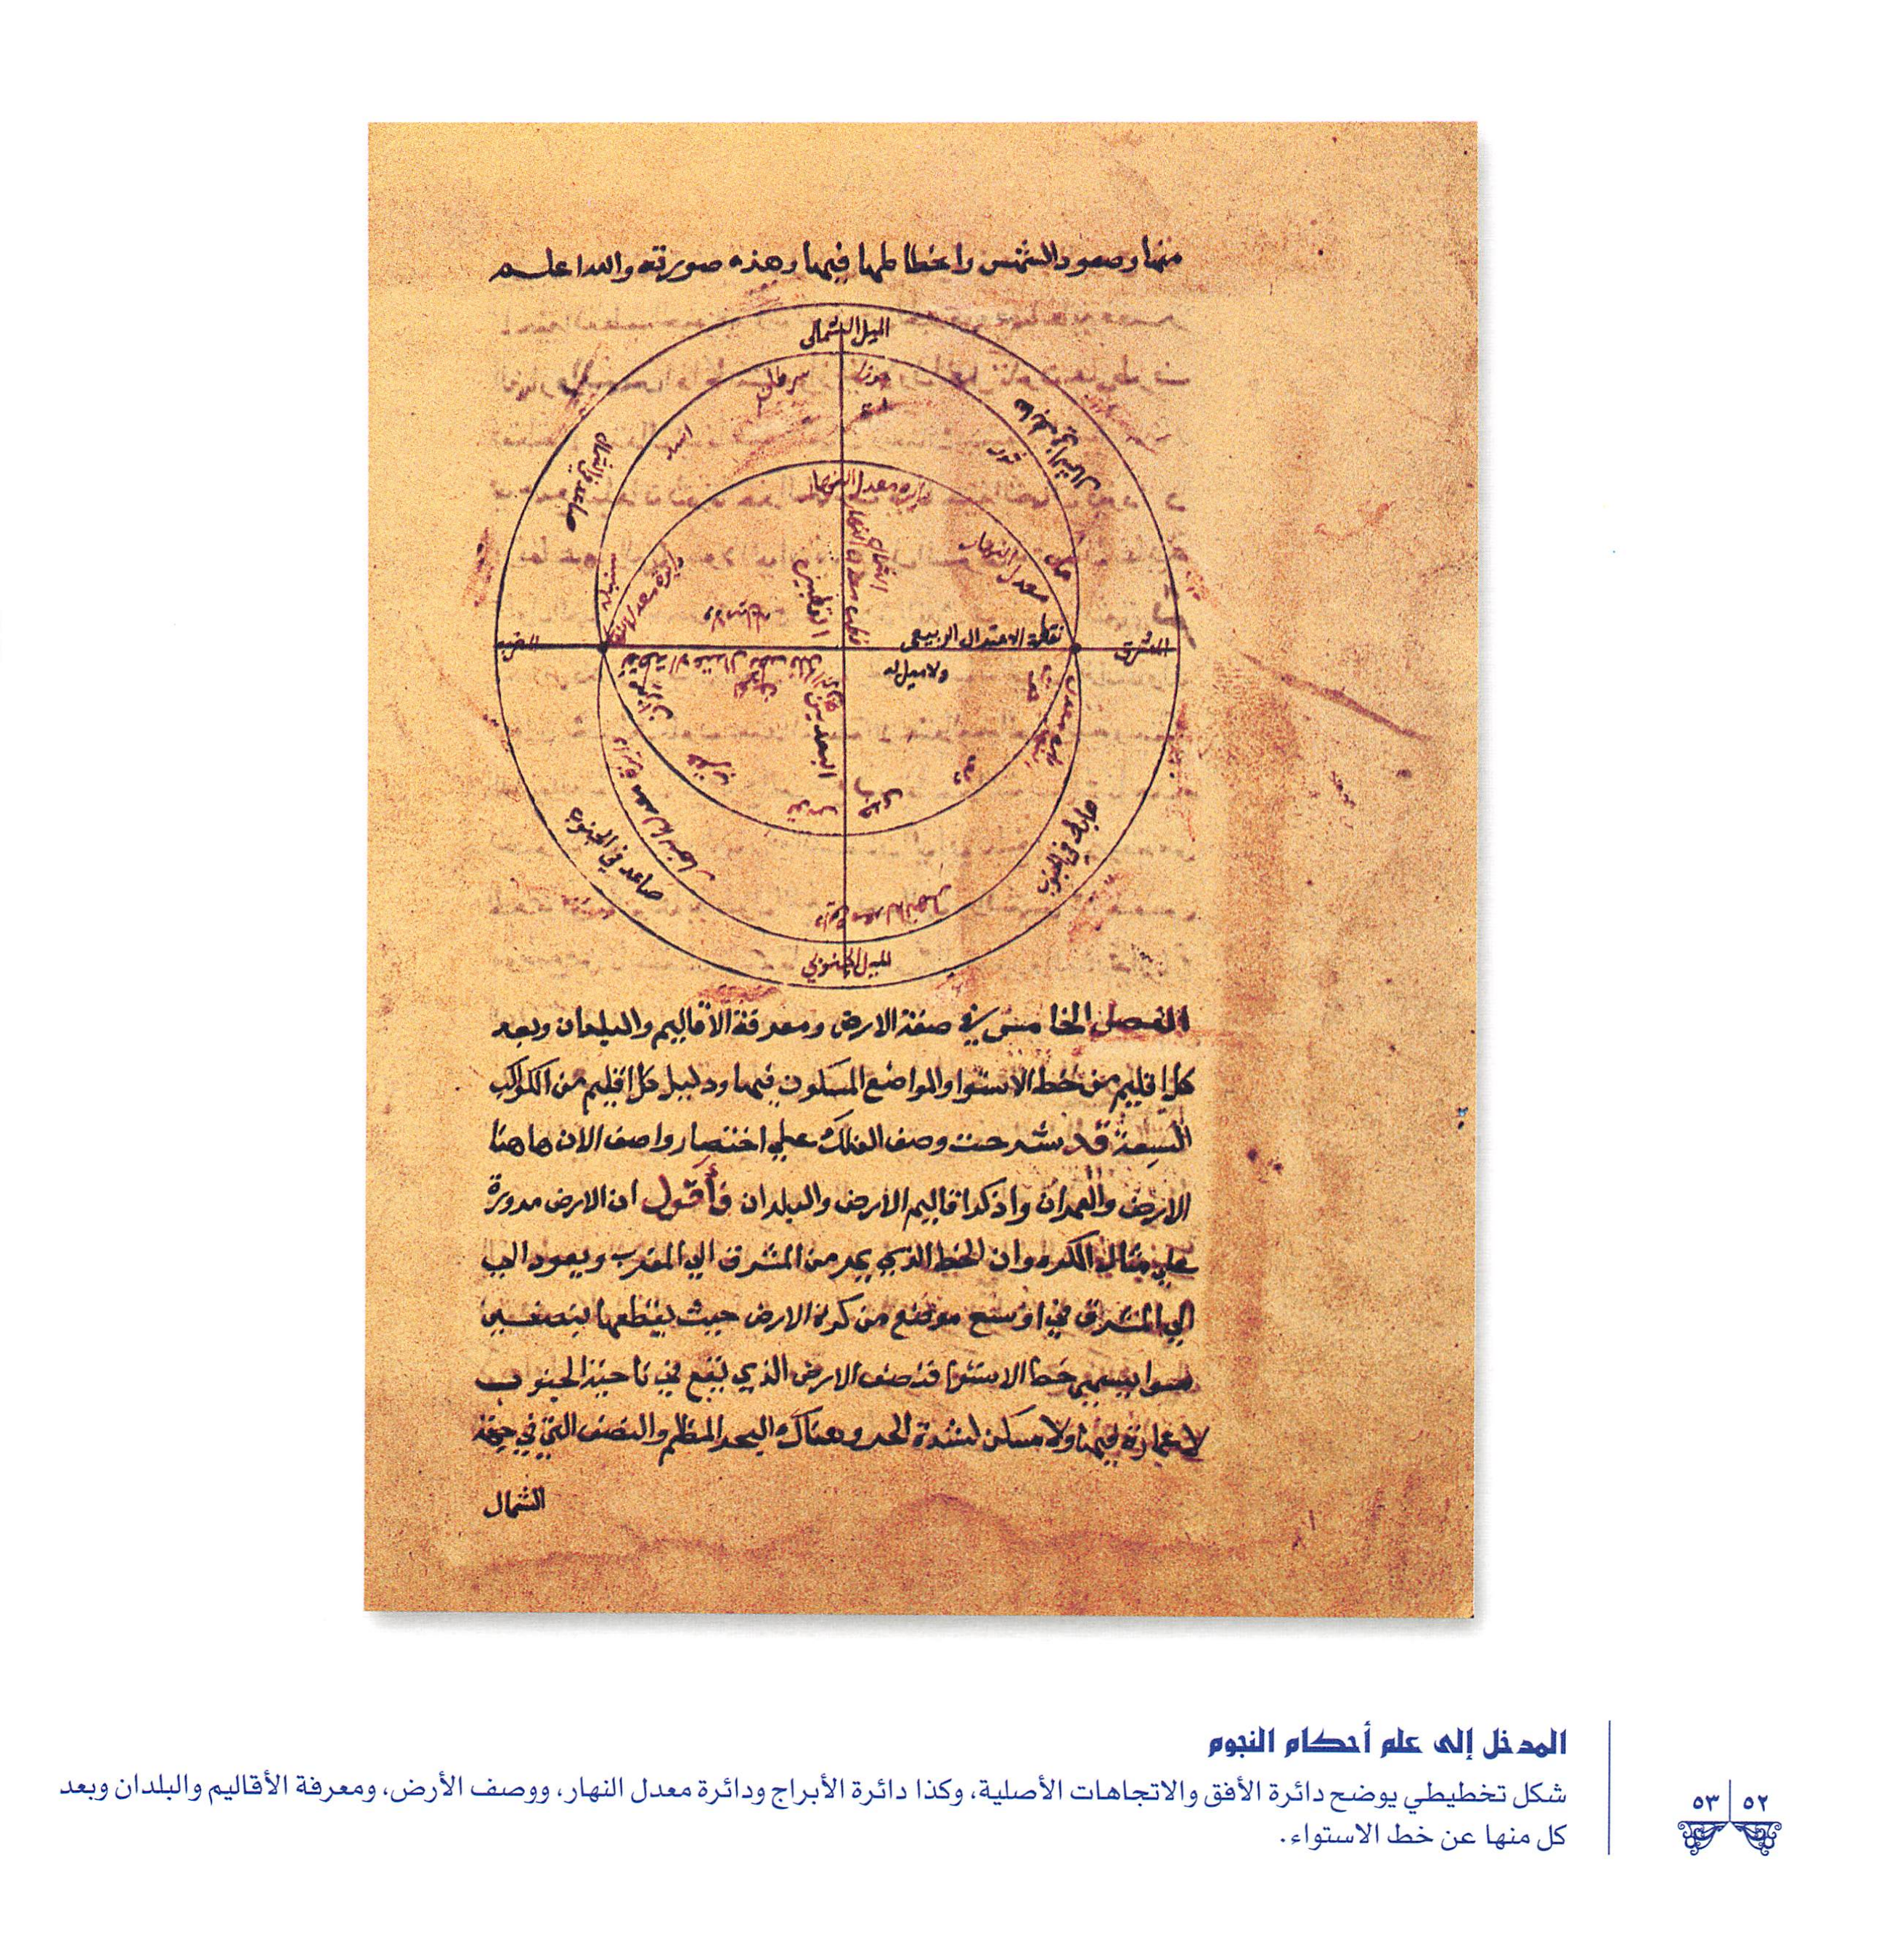 منها وصعود الشمس وانحطاطها فيها وهذه صورته والله اعلم
الميل الشمالي
جوزا
سرطان
اسد
ثور
دايرة معدل النهار
معدل النهار
حمل
سنبله
نقطة الاعتدال الربيعي
ولا ميل له
المشرق
المغرب
القطبين
البعد بين
جدي
قوس
صاعد في الجنوب
هابط في الجنوب
دايرة معدل النهار
الميل الجنوبي
الفصل الخامس في صفة الارض ومعرفة الأقاليم والبلدان وبعد
كل اقليم من خط الاستوا والمواضع المسكون فيها ودليل كل اقليم من الكواكب
السبعة قد شرحت وصف الفلك علي اختصار واصف الان هاهنا
الارض والعمران واذكر اقاليم الارض والبلدان فأقول ان الارض مدورة
علي مثال الكره وان الخط الذي يمر من المشرق الي المغرب ويعود الي
الي المشرق في اوسع موضع من كرة الارض حيث يقطعها بنصفين
سوا يسمي خط الاستوا فنصف الارض الذي يقع في ناحية الجنوب
لا عمارة فيها ولا مسكن لشدة الحر وهناك البحر المظلم والنصف التي في جهة
الشمال
المدخل إلى علم أحكام النجوم
شكل تخطيطي يوضح دائرة الأفق والاتجاهات الأصلية، وكذا دائرة الأبراج ودائرة معدل النهار، ووصف الأرض، ومعرفة الأقاليم والبلدان وبعد
كل منها عن خط الاستواء.
٥٢ ٥٣